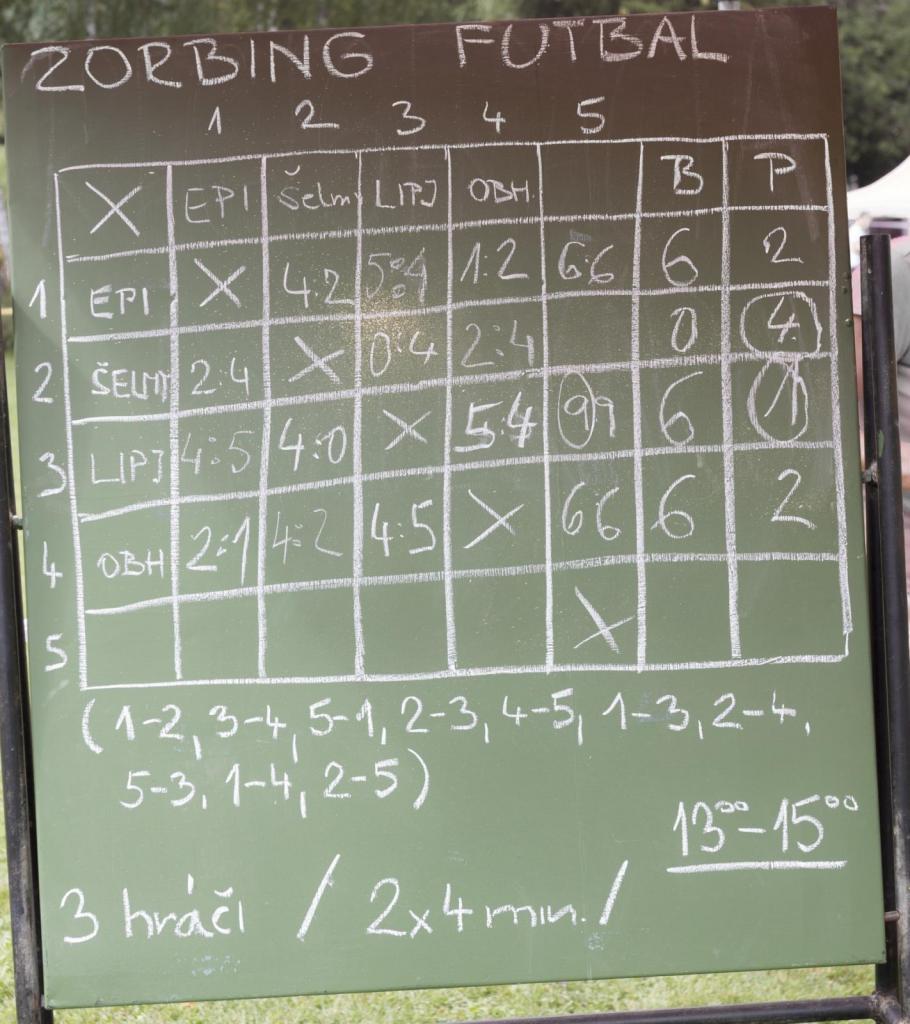 ZORBING FUTBAL
1 2 3 4 5
X EPI Šelmy LIPJ OBH. B P
1 EPI X 4:2 5:4 1:2 6:6 6 2
2 ŠELMY 2:4 X 0:4 2:4 0 4
3 LIPJ 4:5 4:0 X 5:4 99 6 1
4 OBH 2:1 4:2 4:5 X 66 6 2
5 X
(1-2, 3-4, 5-1, 2-3, 4-5, 1-3, 2-4,
5-3, 1-4, 2-5)
13⁰⁰-15⁰⁰
3 hráči / 2x4 min. /